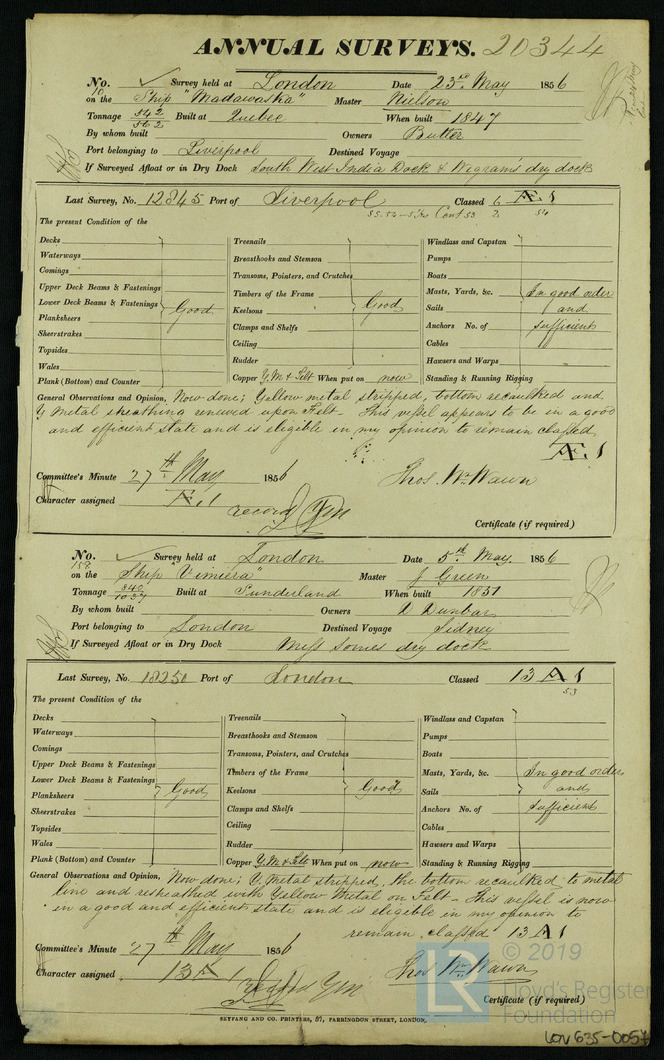 ANNUAL SURVEYS. 20344
No. 10 Survey held at London Date 23rd May 1856
on the Ship "Madawaska" Master Nielson
Tonnage 542 562 Built at Quebec When built 1847
By whom built Owners Butter
Port belonging to Liverpool Destined Voyage
If Surveyed Afloat or in Dry Dock South West India Dock & Wigram's dry dock
Last Survey, No. 12845 Port of Liverpool Classed 6 Æ 1
The present Condition of the
Decks
Waterways
Comings
Upper Deck Beams & Fastenings
Lower Deck Beams & Fastenings
Planksheers
Sheerstrakes
Topsides
Wales
Plank (Bottom) and Counter
Good
Treenails
Breasthooks and Stemson
Transoms, Pointers, and Crutches
Timbers of the Frame
Keelsons
Clamps and Shelfs
Ceiling
Rudder
Good
Copper Y.M & Felt When put on now
Windlass and Capstan
Pumps
Boats
Masts, Yards, &c.
Sails
Anchors No. of
Cables
Hawsers and Warps
Standing & Running Rigging
In good order
and
sufficient
General Observations and Opinion, Now done; Yellow metal stripped, bottom recaulked and
Y Metal sheathing renewed upon Felt - This vessel appears to be in a good
and efficient state and is eligible in my opinion to remain classed
Æ 1
Committee's Minute 27th May 1856 Thos. Wm. Wawn
Character assigned Æ 1 record YM
Certificate (if required)
No. 159 Survey held at London Date 5th May 1856
on the Ship "Vimiera" Master J Green
Tonnage 940 1037 Built at Sunderland When built 1851
By whom built Owners D Dunbar
Port belonging to London Destined Voyage Sidney
If Surveyed Afloat or in Dry Dock Mess Somes dry dock
Last Survey, No. 18250 Port of London Classed 13 A 1
53
The present Condition of the
Decks
Waterways
Comings
Upper Deck Beams & Fastenings
Lower Deck Beams & Fastenings
Planksheers
Sheerstrakes
Topsides
Wales
Plank (Bottom) and Counter
Good
Treenails
Breasthooks and Stemson
Transoms, Pointers, and Crutches
Timbers of the Frame
Keelsons
Clamps and Shelfs
Ceiling
Rudder
Good
Copper Y.M & Felt When put on now
Windlass and Capstan
Pumps
Boats
Masts, Yards, &c.
Sails
Anchors No. of
Cables
Hawsers and Warps
Standing & Running Rigging
In good order
and
sufficient
General Observations and Opinion, Now done; Y. Metal stripped, the bottom recaulked to metal
line and resheathed with Yellow Metal on Felt - This vessel is now
in a good and efficient state and is eligible in my opinion to
remain classed 13 A 1
Committee's Minute 27th May 1856 Thos Wm Wawn
Character assigned 13 A 1 Record YM
Certificate (if required)
SEYFANG AND CO. PRINTERS, 57, FARRINGDON STREET, LONDON.
© 2019
LR Lloyd's Register
Foundation
LON 635-0057